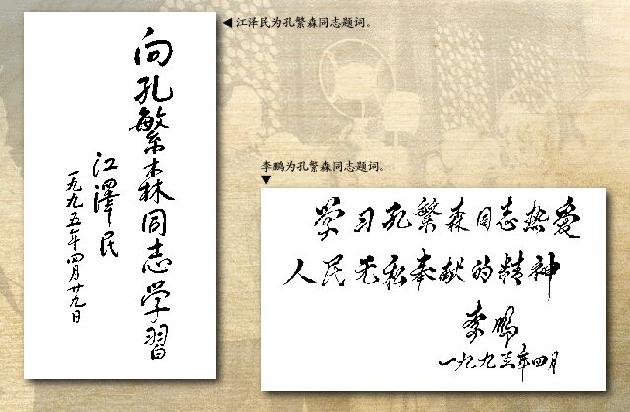 ◀江泽民为孔繁森同志题词。
向孔繁森同志学習
江澤民
一九九五年四月廿九日
李鹏为孔繁森同志题词。
▼
学习孔繁森同志热爱
人民无私奉献的精神
李鹏
一九九五年四月